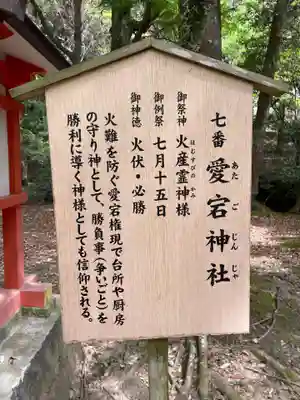 七番 愛宕神社
あたごじんじゃ
御祭神 火産霊神様
ほむすびのかみ
御例祭 七月十五日
御神徳 火伏・必勝
火難を防ぐ愛宕権現で台所や厨房
の守り神として、勝負事(争いごと)を
勝利に導く神様としても信仰される。